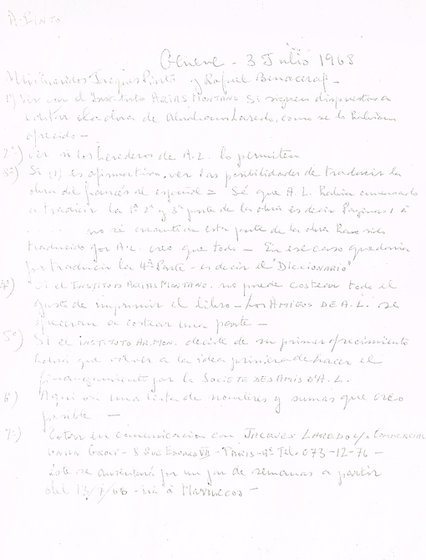 A. PINTO
Genève - 3 Julio 1968
Mis queridos Inglés Pinto y Rafael Benazeraf -
1º) Ver con el Instituto ARIAS MONTANO si siguen dispuestos a
editar la obra de Abraham Laredo, como se lo habían
ofrecido -
2º) Ver si los herederos de A.L. lo permiten
3º) Si (1) es afirmativo, ver las posibilidades de traducir la
obra del francés al español = Sé que A.L. había comenzado
a traducir la 1ª 2ª y 3ª parte de la obra es decir Páginas 1 à
..... no sé cuanto de esta parte de la obra
traducido por A.L. creo que todo - En ese caso quedaría
por traducir la 4ª Parte - es decir el "DICCIONARIO"
4º) Si el INSTITUTO ARIAS MONTANO. no puede costear todo el
gasto de imprimir el libro - LOS AMIGOS DE A.L. se
a costear una parte -
5º) Si el INSTITUTO AR. MON. desiste de su primer ofrecimiento
habrá que volver a la idea primera de hacer el
por la SOCIETE DES AMIS D'A.L.
6) Aquí va una lista de nombres y sumas que creo
posible -
7º) Entrar en comunicación con JACQUES LAREDO
- PARIS - Tel. 073-12-76 -
éste se ausentará por un par de semanas a partir
del 12/7/68 - irá à Marruecos -